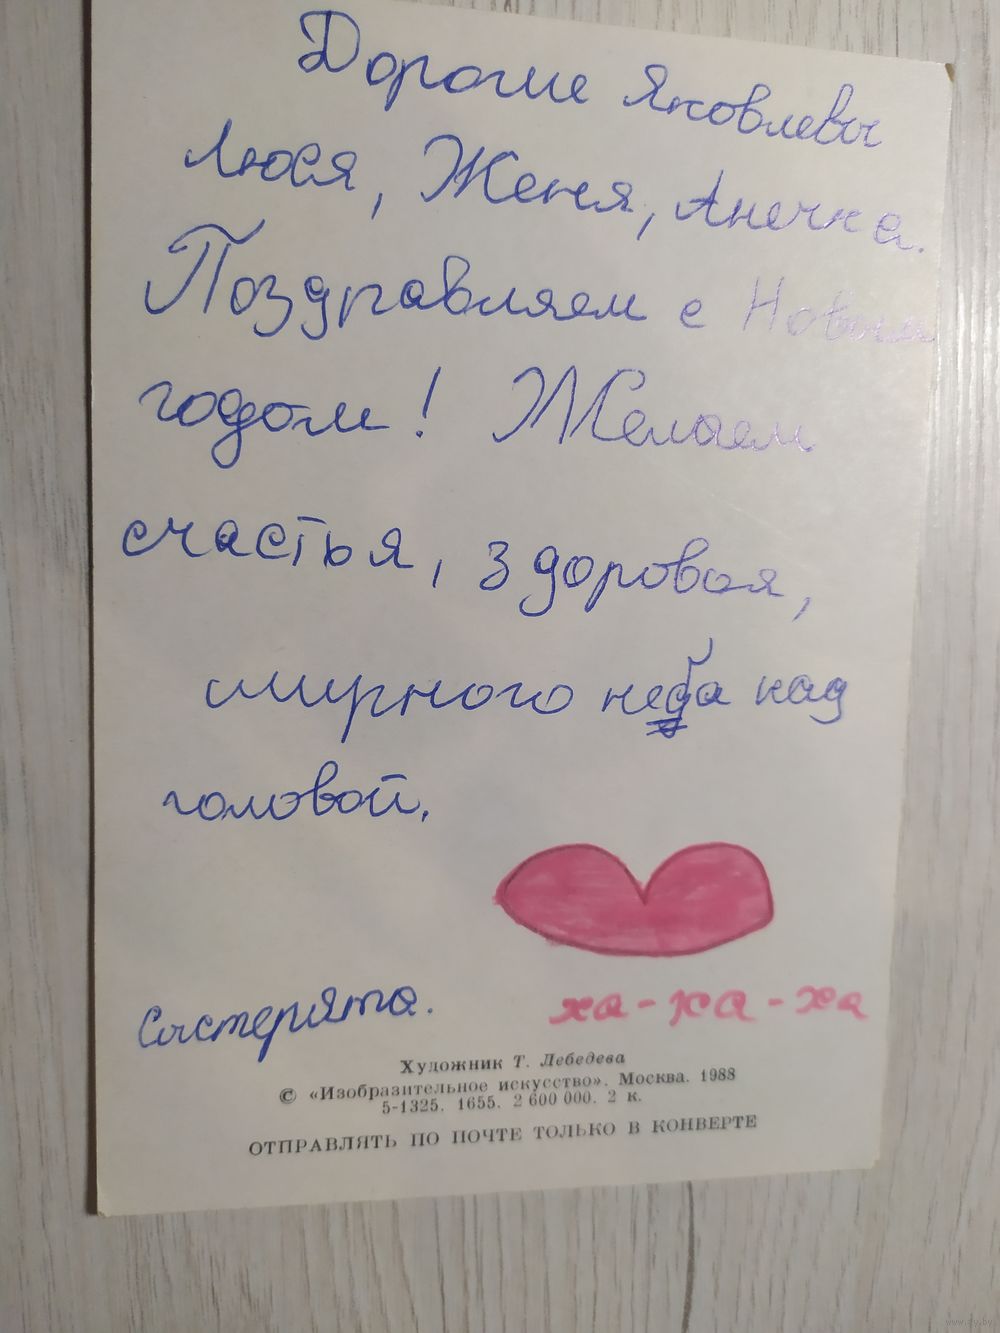 Дорогие Яковлевы
Люся, Женя, Анечка.
Поздравляем с Новым
годом! Желаем
счастья, здоровая,
мирного неба над
головой.
Сыстерята.
ха-ха-ха
Художник Т. Лебедева
© «Изобразительное искусство». Москва. 1988
5-1325. 1655. 2 600 000. 2 к.
ОТПРАВЛЯТЬ ПО ПОЧТЕ ТОЛЬКО В КОНВЕРТЕ